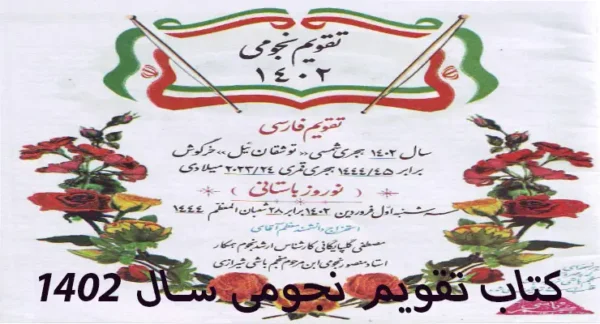 تقویم نجومی
۱۴۰۲
تقویم فارسی
سال ۱۴۰۲ هجری شمسی «توشقان ئیل» خرگوش
برابر ۱۴۴۴/۴۵ هجری قمری ۲۰۲۳/۲۴ میلادی
(نوروز باستانی)
سه شنبه اول فروردین ۱۴۰۲ برابر ۲۸ شعبان المعظم ۱۴۴۴
استخراج دانشمند معظم آقای
مصطفی گلپایگانی کارشناس ارشد نجوم همکار
استاد منصور نجومی ابن مرحوم منجم باشی شیرازی
کتاب تقویم نجومی سال 1402